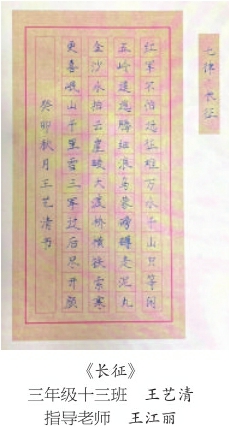 七律·长征
红军不怕远征难万水千山只等闲
五岭逶迤腾细浪乌蒙磅礴走泥丸
金沙水拍云崖暖大渡桥横铁索寒
更喜岷山千里雪三军过后尽开颜
癸卯秋月王艺清书
《长征》
三年级十三班 王艺清
指导老师 王江丽